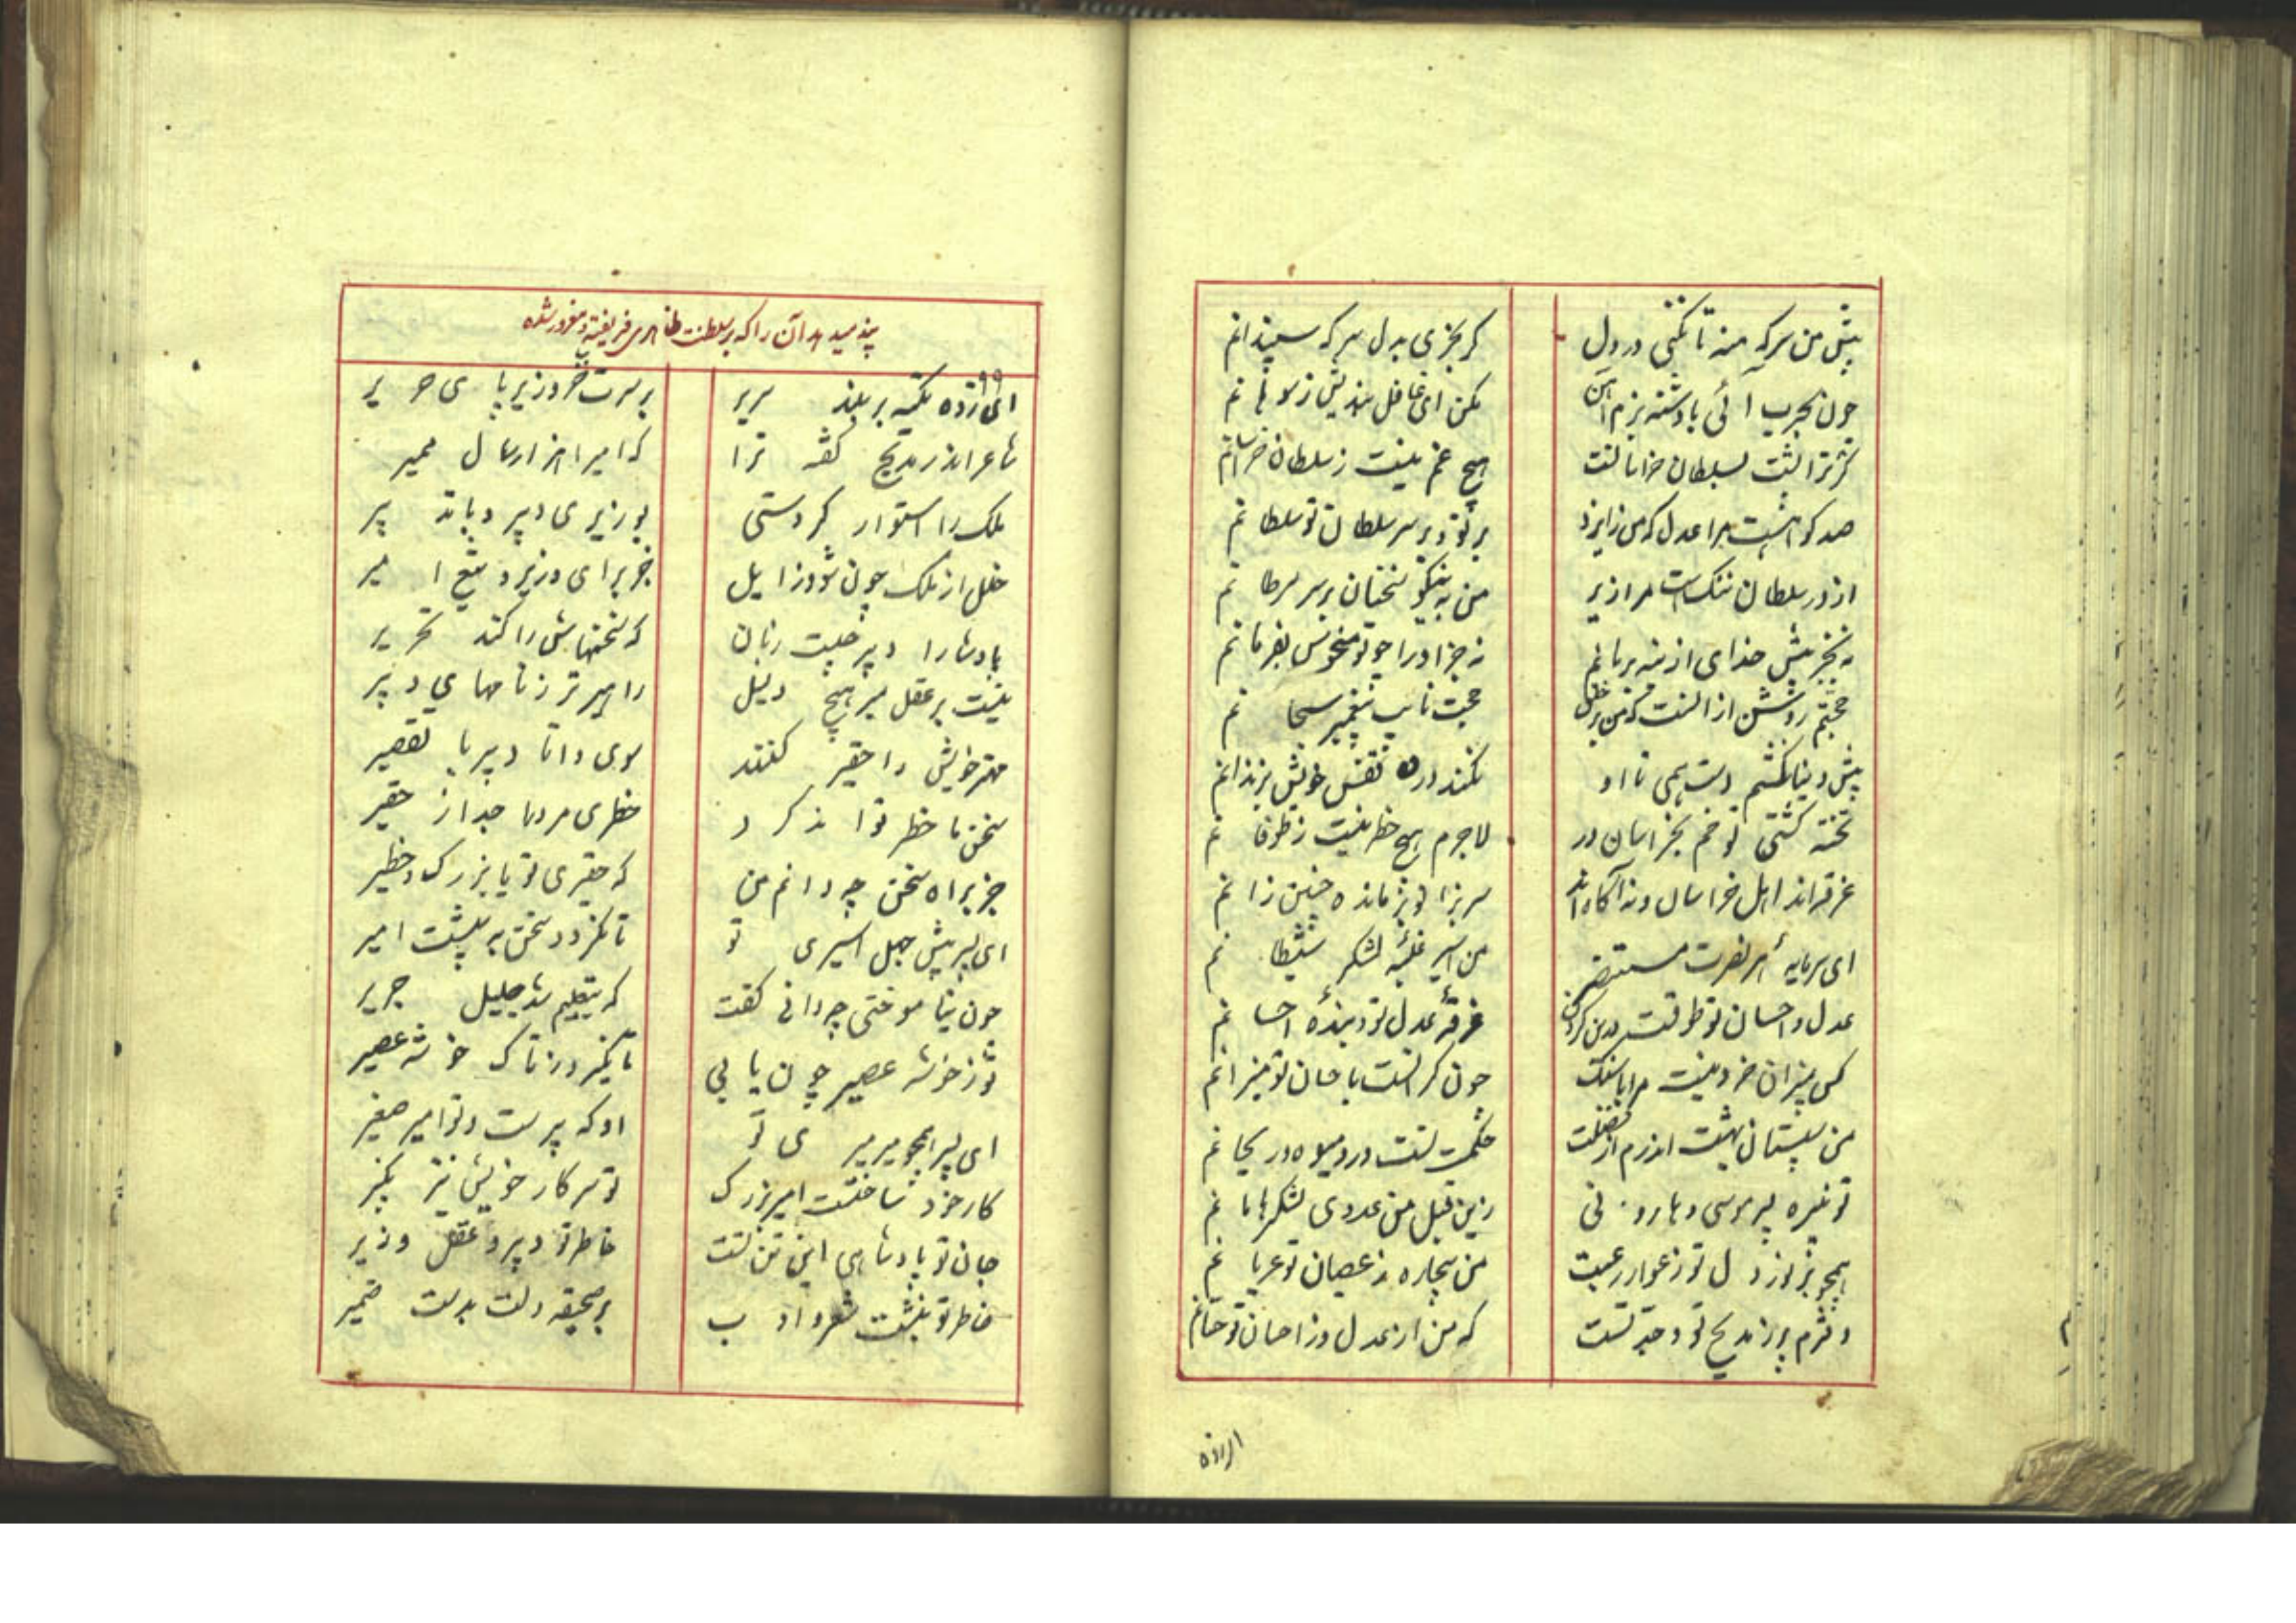 پیش من سرکه منه تا نکنی در دل
کر بخری بدل سرکه سپندانم
چون بحرب آئی با دشنه نرم آهن
مکن ای غافل بندیش ز سوهانم
کر ترا پشت بسلطان خراسانست
هیچ غم نیست ز سلطان خراسانم
صد کواهست مرا عدل که من ز ایزد
بر تو و بر سر سلطان تو سلطانم
از در سلطان ننکست مرا زیر
من به نیکو سخنان بر سر سرطانم
نه بجز پیش خدای از بنه بر پایم
نه جز او را چو تو منحوس بفرمانم
حجتم روشن از انست که من بر خلق
حجت نایب پیغمبر سبحانم
پیش دنیا نکشم دست همی تا او
نکند در قفس خویش بزندانم
تخته کشتی نوحم بخراسان در
لاجرم هیچ خطر نیست ز طوفانم
غرقه اند اهل خراسان و نه آکاه اند
سر بزانو بر مانده چنین زانم
ای سرمایه هر نصرت مستنصر
من اسیر غلبه لشکر شیطانم
عدل و احسان تو طوقست درین کردن
غرقه عدل تو و بنده احسانم
کس بمیزان خرد نیست مرا پاسنک
چون کرانست باحسان تو میزانم
من ببستان بهشت اندرم از فضلت
حکمت تست درو میوه و ریحانم
تو نبیره پسر موسی و هارونی
زین قبل من عدوی لشکر هامانم
همچو پر نور دل تو ز عوار و عیبت
من بیچاره ز عصیان تو عریانم
دفترم پر ز مدیح تو و جد تست
که من از عدل و ز احسان تو حسانم
ای زده
پند میدهد آن را که بر سلطنت ظاهری فریفته و مغرور شده
۹۹
ای زده تکیه بر بلند سریر
بر سرت خز و زیر پای حریر
شاعر اندر مدیح کفته ترا
که امیرا هزار سال ممیر
ملک را استوار کردستی
بوزیری دبیر و با تدبیر
خلل از ملک چون شود زایل
جز برای وزیر و تیغ امیر
پادشا را دبیر چیست زبان
که سخنهاش را کند تحریر
نیست بر عقل میر هیچ دلیل
راهبرتر ز نامهای دبیر
مهتر خویش را حقیر کنند
سوی دانا دبیر با تقصیر
سخن با خطر تواند کرد
خطری مرد را جدا ز حقیر
جز براه سخن چه دانم من
که حقیری تو یا بزرک و خطیر
ای پسر پیش جهل اسیری تو
تا نکردد سخن به پیشت اسیر
چون نیاموختی چه دانی کفت
که بتعلیم شد جلیل جریر
تو ز خوشه عصیر چون یابی
تا نکیرد ز تاک خوشه عصیر
ای پسر همچو میر میری تو
او که پیرست و تو امیر صغیر
کار خود ساختست امیر بزرک
تو سر کار خویش نیز بکیر
جان تو پادشاهی این تن تست
خاطر تو دبیر و عقل وزیر
خاطر تو نبشت شعر و ادب
بر صحیفه دلت بدست ضمیر